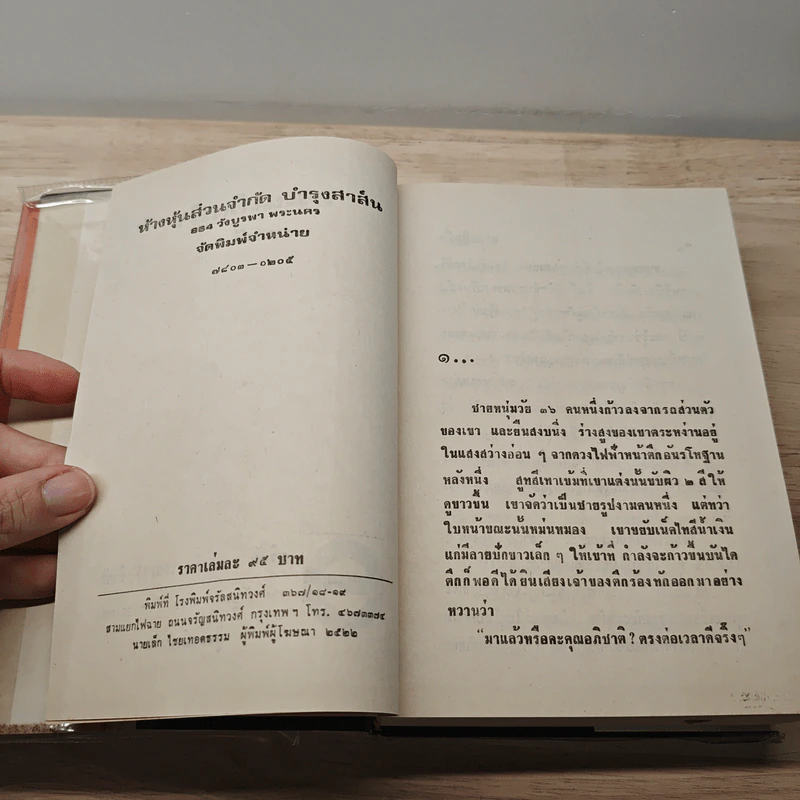 ห้างหุ้นส่วนจำกัด บำรุงสาส์น
๑๑๔ วังบูรพา พระนคร
จัดพิมพ์จำหน่าย
๗๘๐๓—๐๒๐๕
ราคาเล่มละ ๙๕ บาท
พิมพ์ที่ โรงพิมพ์จรัลสนิทวงศ์ ๓๖๗/๑๘-๑๙
สามแยกไฟฉาย ถนนจรัญสนิทวงศ์ กรุงเทพ ฯ โทร. ๔๖๗๓๓๗๔
นายเล็ก ไชยเทอดธรรม ผู้พิมพ์ผู้โฆษณา ๒๕๒๒
๑...
ชายหนุ่มวัย ๓๖ คนหนึ่งก้าวลงจากรถส่วนตัว
ของเขา และยืนสงบนิ่ง ร่างสูงของเขาตระหง่านอยู่
ในแสงสว่างอ่อน ๆ จากดวงไฟฟ้าหน้าตึกอันรโหฐาน
หลังหนึ่ง สูทสีเทาเข้มที่เขาแต่งนั้นขับผิว ๒ สีให้
ดูขาวขึ้น เขาจัดว่าเป็นชายรูปงามคนหนึ่ง แต่ทว่า
ใบหน้าขณะนั้นหม่นหมอง เขาขยับเน็คไทสีน้ำเงิน
แก่มีลายปักขาวเล็ก ๆ ให้เข้าที่ กำลังจะก้าวขึ้นบันได
ตึกก็พอดีได้ยินเสียงเจ้าของตึกร้องทักออกมาอย่าง
หวานว่า
“มาแล้วหรือคะคุณอภิชาติ? ตรงต่อเวลาดีจริงๆ”